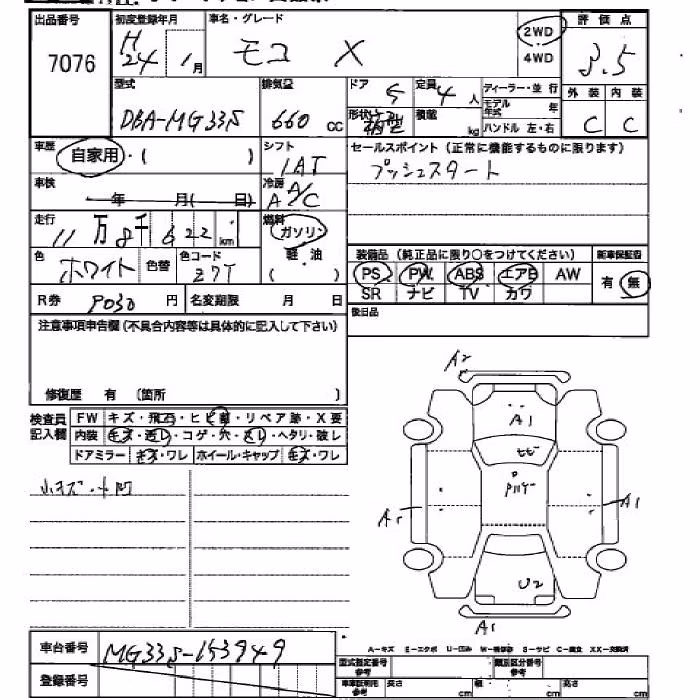 出品番号 初度登録年月 車名・グレード 評価点
7076 H24年 1月 モコ X 2WD 4WD 3.5
型式 排気量 ドア 5 定員 4人 ディーラー・並行 外装 内装
DBA-MG33S 660cc 形状 箱型 積載 kg モデル年式 年 ハンドル 左・右 C C
車歴 自家用・( ) シフト 1AT セールスポイント(正常に機能するものに限ります)
車検 年 月( 日) 冷房 A A/C プッシュスタート
走行 11万8千622km 燃料 ガソリン
軽・油 ( )
色 ホワイト 色替 色コード Z7T
装備品(純正品に限り○をつけてください) 新車保証書
PS PW ABS エアB AW 有・無
SR ナビ TV カワ
R券 円 名変期限 月 日 後日品
注意事項申告欄(不具合内容等は具体的に記入して下さい)
修復歴 有 〔箇所 〕
検査員記入欄
FW キズ・飛石・ヒビ・リペア跡・X要
内装 キズ・汚レ・コゲ・穴・スレ・ヘタリ・破レ
ドアミラー キズ・ワレ ホイール・キャップ キズ・ワレ
小キズ・小凹
A2
A1
ヒビ
A1 A1
U2
A1
車台番号 MG33S-153949
登録番号
A-キズ E-エクボ U-凹み W-補修跡 S-サビ C-腐食 XX-交換済
型式指定番号 参考 類別区分番号 参考
車車証明用 参考 長さ cm 幅 cm 高さ cm